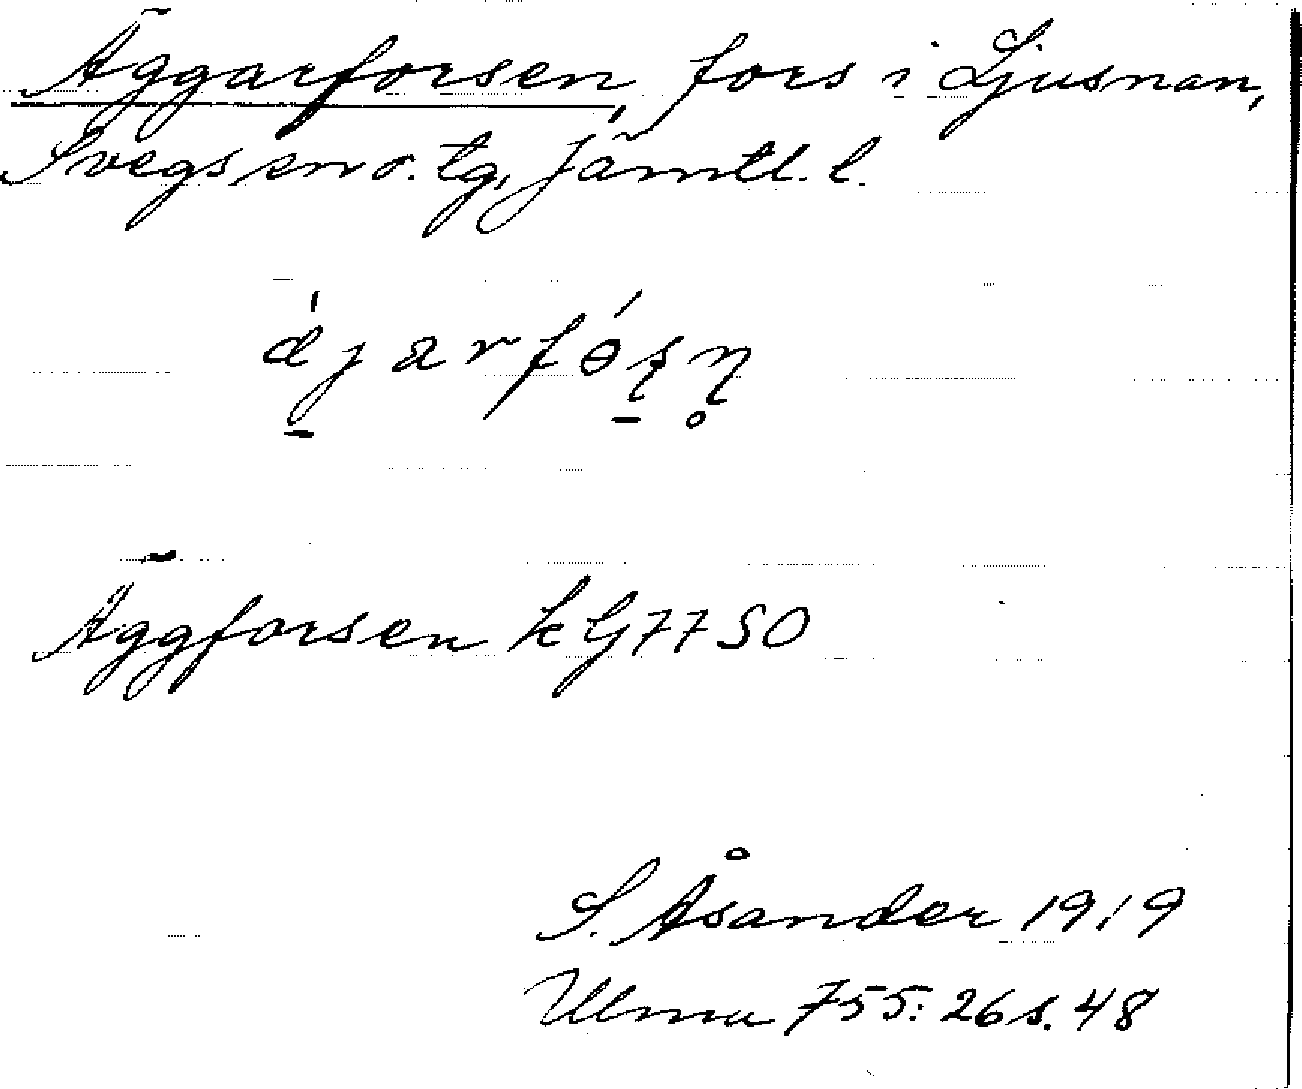 Äggarforsen, fors i Ljusnan,
Svegs sn o. tg, Jämtl. l.
Äggforsen kG7750
S. Åsander 1919
Ulma 755: 26 s. 48